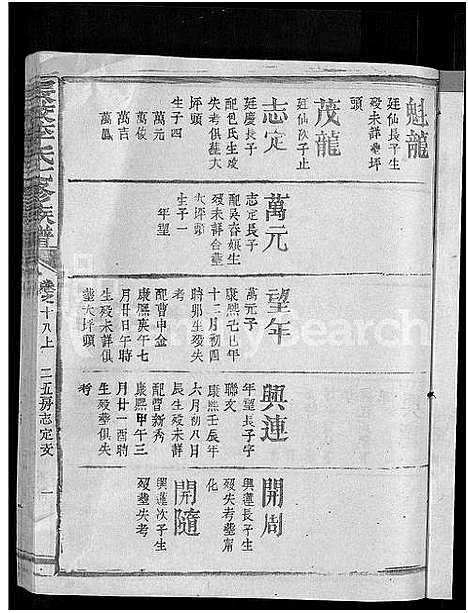 魁龍
廷仙長子生
歿未詳葬坪
頭
茂龍
廷仙次子止
志定
廷慶長子
配包氏生歿
失考俱葬大
坪頭
生子四
萬元
萬俊
萬吉
萬鳳
萬元
志定長子
配吳春娘生
歿未詳合葬
大坪頭
生子一
年望
望年
萬元子
康熙己巳年
十二月初四
時卯生歿失
考
配曹申金
康熙庚午七
月廿日午時
生歿未詳俱
葬大坪頭
興連
年望長子字
聯文
康熙壬辰年
六月初八日
辰生歿未詳
配曹新秀
康熙甲午三
月廿一酉時
生歿葬俱失
考
開周
興蓮長子生
歿失考葬甯
化
開隨
興蓮次子生
歿葬失考
李氏七修族譜
卷之十八上
二五房志定支
一
FamilySearch